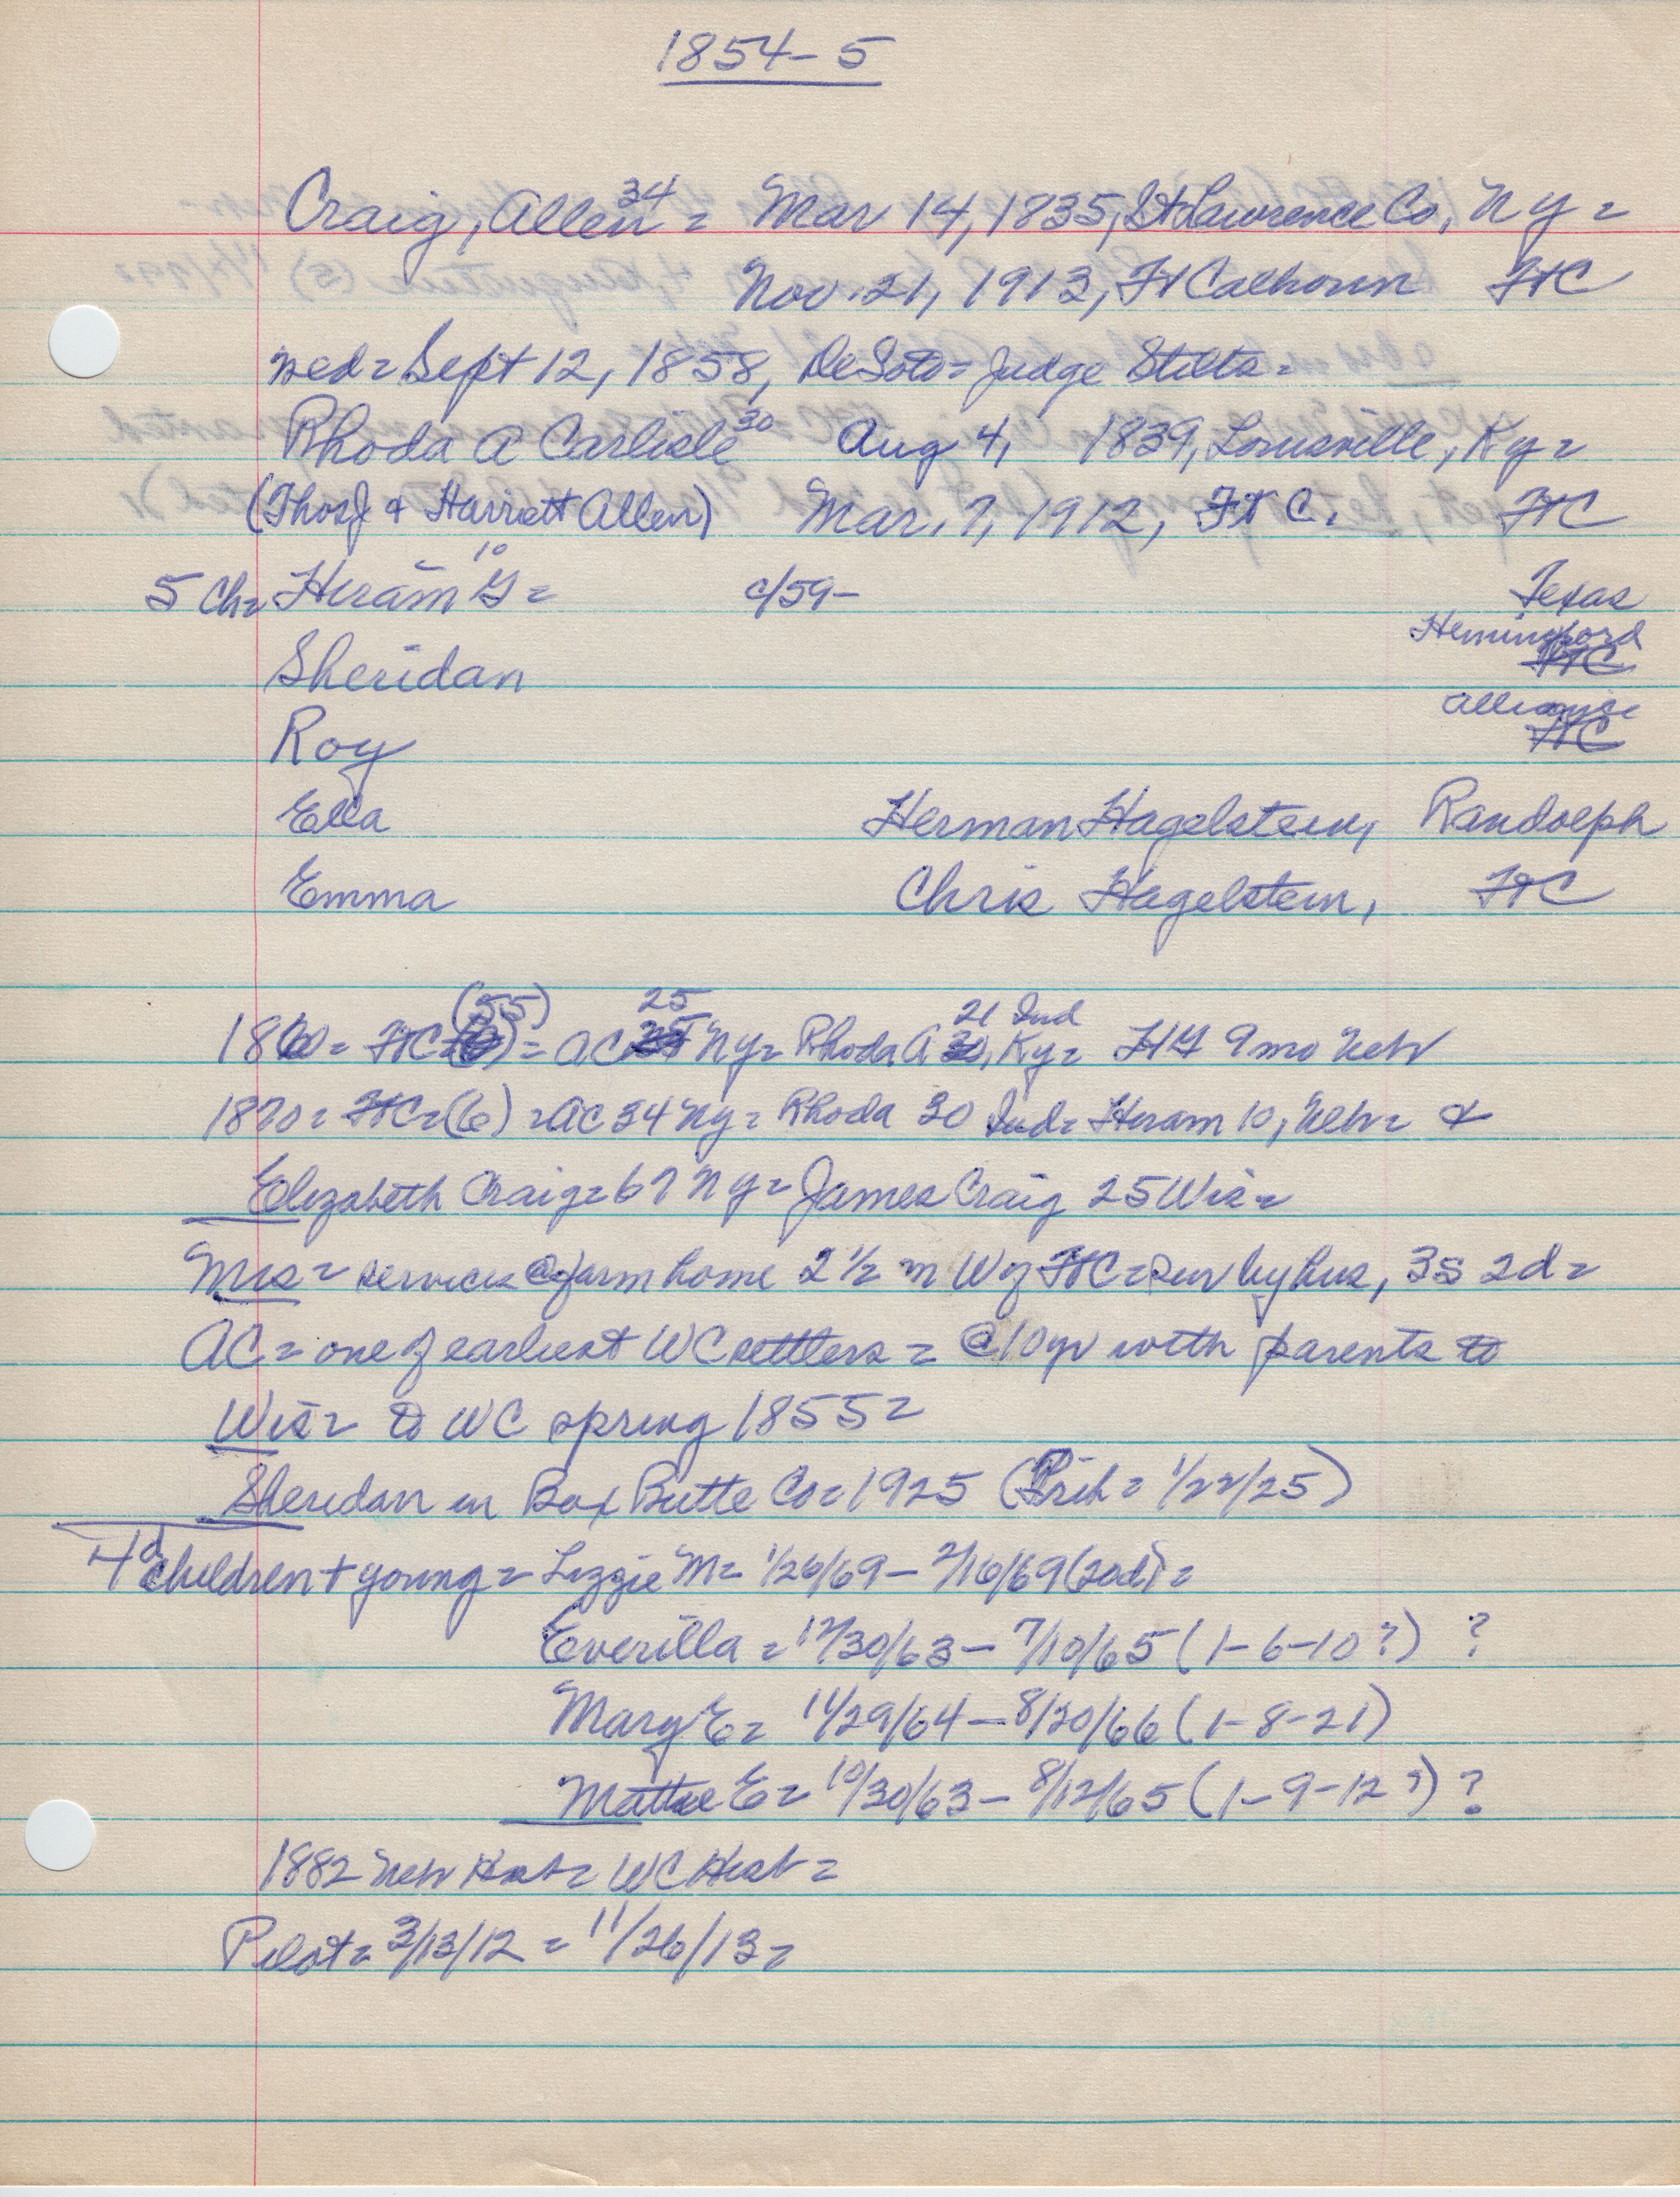 1854-5
Craig, Allen 34 = Mar 14, 1835, St Lawrence Co, Ny =
Nov. 21, 1913, Ft Calhoun FtC
wed = Sept 12, 1858, DeSoto = Judge Stilts =
Rhoda A Carlisle 30 Aug 4, 1839, Louisville, Ky =
(Thos J & Harriett Allen) Mar. 7, 1912, Ft C. FtC
5 Ch = Hiram 10 G = c/59- Texas
Hemingford
Sheridan FtC
Alliance
Roy FtC
Ella Herman Hagelstein, Randolph
Emma Chris Hagelstein, FtC
(55) 25 21 Ind
1860 = FtC = (6) = AC 35 Ny = Rhoda A 30, Ky = HG 9 mo Neb
1870 = FtC = (6) = AC 34 Ny = Rhoda 30 Ind = Hiram 10, Neb = &
Elizabeth Craig = 67 Ny = James Craig 25 Wis =
Mrs = services @ farm home 2 1/2 m W of FtC = sur by hus, 3s 2d =
AC = one of earliest WC settlers = @ 10 yr with parents to
Wis = to WC spring 1855 =
Sheridan in Box Butte Co = 1925 (Trib = 1/22/25)
4 children d young = Lizzie M = 1/26/69 - 2/16/69 (20d) =
Everilla = 12/30/63 - 7/10/65 (1-6-10?) ?
Mary E = 11/29/64 - 8/20/66 (1-8-21)
Mattie E = 10/30/63 - 8/12/65 (1-9-12?) ?
1882 Neb Hist = WC Hist =
Pilot = 3/13/12 = 11/26/13 =